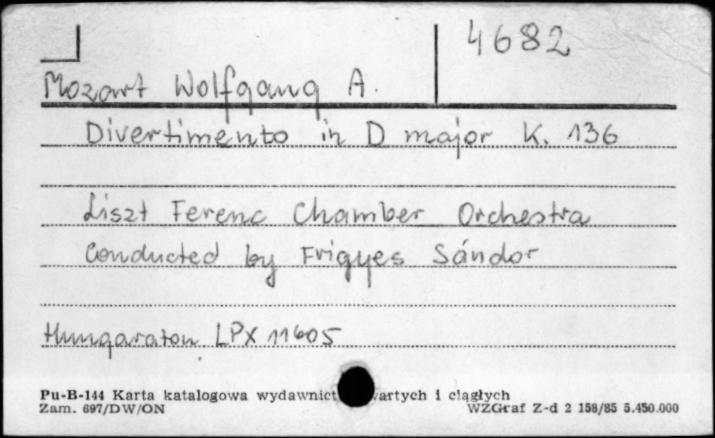 4682
Mozart Wolfgang A.
Divertimento in D major K. 136
Liszt Ferenc Chamber Orchestra
Conducted by Frigyes Sándor
Hungaraton LPX 11605
Pu-B-144 Karta katalogowa wydawnict wartych i ciągłych
Zam. 697/DW/ON WZGraf Z-d 2 158/85 5.450.000